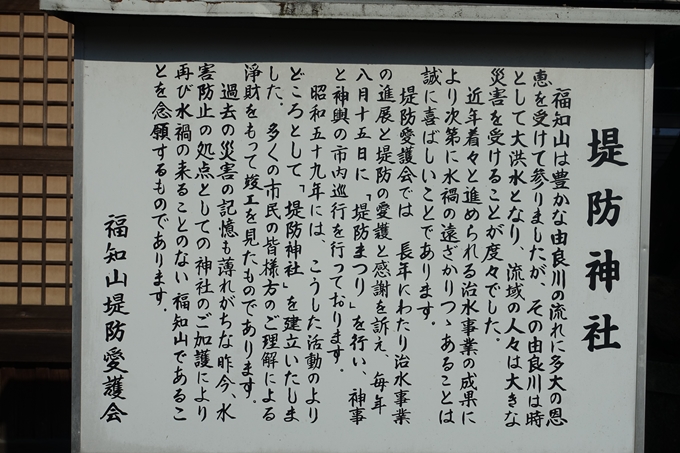 堤防神社
福知山は豊かな由良川の流れに多大の恩
恵を受けて参りましたが、その由良川は時
として大洪水となり、流域の人々は大きな
災害を受けることが度々でした。
近年着々と進められる治水事業の成果に
より次第に水禍の遠ざかりつゝあることは
誠に喜ばしいことであります。
堤防愛護会では 長年にわたり治水事業
の進展と堤防の愛護と感謝を訴え、毎年
八月十五日に「堤防まつり」を行い、神事
と神輿の市内巡行を行っております。
昭和五十九年には、こうした活動のより
どころとして「堤防神社」を建立いたしま
した。多くの市民の皆様方のご理解による
浄財をもって竣工を見たものであります。
過去の災害の記憶も薄れがちな昨今、水
害防止の処点としての神社のご加護により
再び水禍の来ることのない福知山であるこ
とを念願するものであります。
福知山堤防愛護会